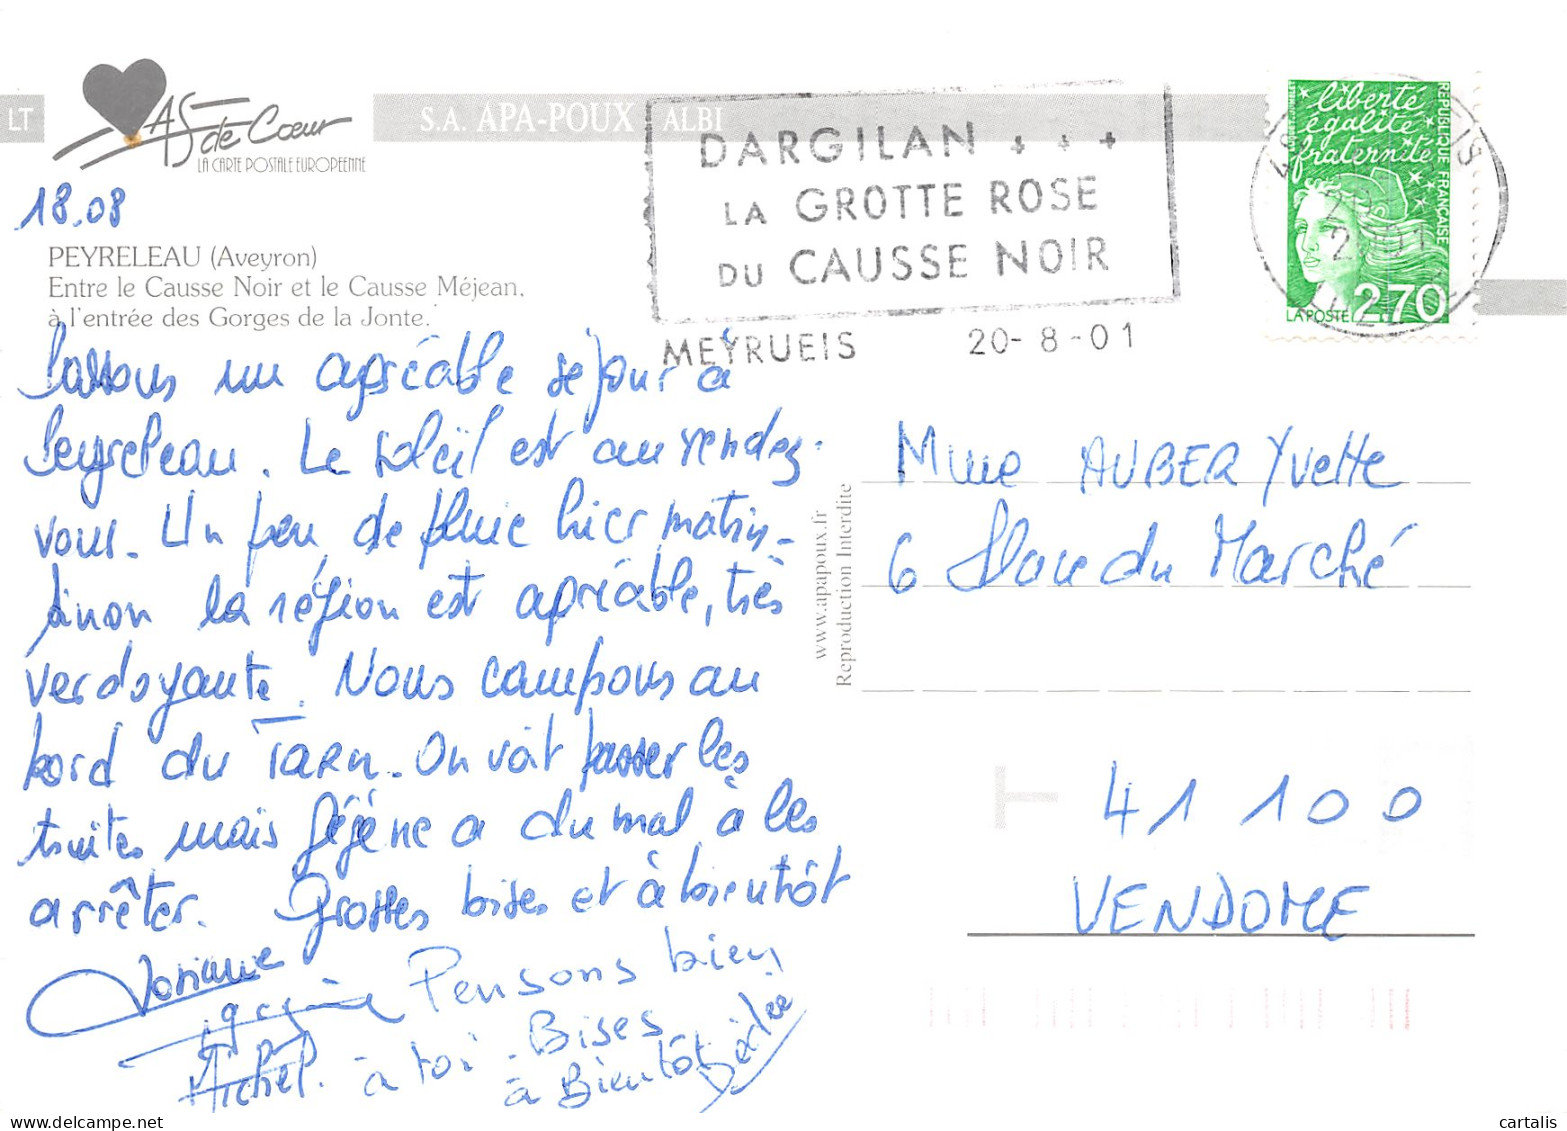 LT
AS de Cœur
LA CARTE POSTALE EUROPEENNE
S.A. APA-POUX ALBI
18.08
PEYRELEAU (Aveyron)
Entre le Causse Noir et le Causse Méjean,
à l'entrée des Gorges de la Jonte.
DARGILAN
LA GROTTE ROSE
DU CAUSSE NOIR
MEYRUEIS 20-8-01
liberté
égalité
fraternité
RÉPUBLIQUE FRANÇAISE
LA POSTE 2,70
Passons un agréable séjour à
Peyreleau. Le soleil est au rendez-
vous. Un peu de pluie hier matin-
sinon la région est agréable, très
verdoyante. Nous campons au
bord du Tarn. On voit passer les
truites mais Gégène a du mal à les
arrêter. Grosses bises et à bientôt
Josiane
Pensons bien
Michel. à toi. Bises
à Bientôt
www.apapoux.fr
Reproduction Interdite
Mme AUBER Yvette
6 Place du Marché
41 100
VENDOME
cartalis